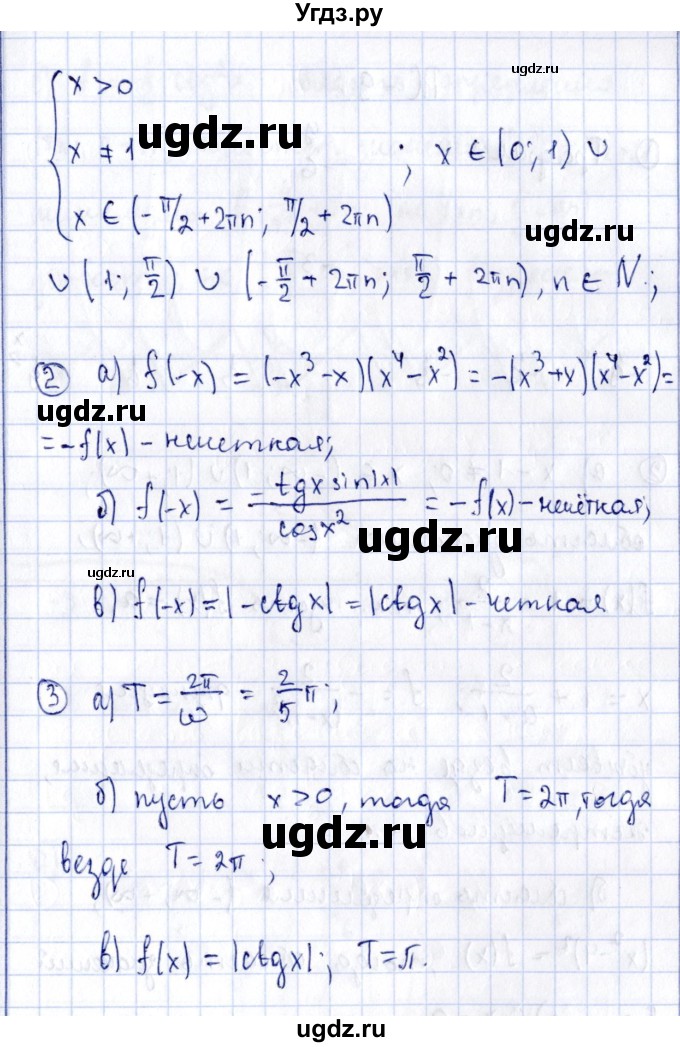 Угдз.ру
ugdz.ru
{ x > 0
x ≠ 1 ; x ∈ (0; 1) ∪
ugdz.ru
x ∈ (-π/2 + 2πn; π/2 + 2πn)
∪ (1; π/2) ∪ (-π/2 + 2πn; π/2 + 2πn), n ∈ N.;
② а) f(-x) = (-x³ - x)(x⁴ - x²) = -(x³ + x)(x⁴ - x²) =
ugdz.ru
ugdz.ru
= -f(x) - нечеткая;
б) f(-x) = -tgx sin|x| / cosx² = -f(x) - нечёткая;
ugdz.ru
ugdz.ru
в) f(-x) = |-ctgx| = |ctgx| - четкая
③ а) T = 2π/ω = 2/5 π;
б) пусть x > 0, тогда T = 2π, тогда
ugdz.ru
везде T = 2π;
в) f(x) = |ctgx|; T = π.
ugdz.ru
ugdz.ru